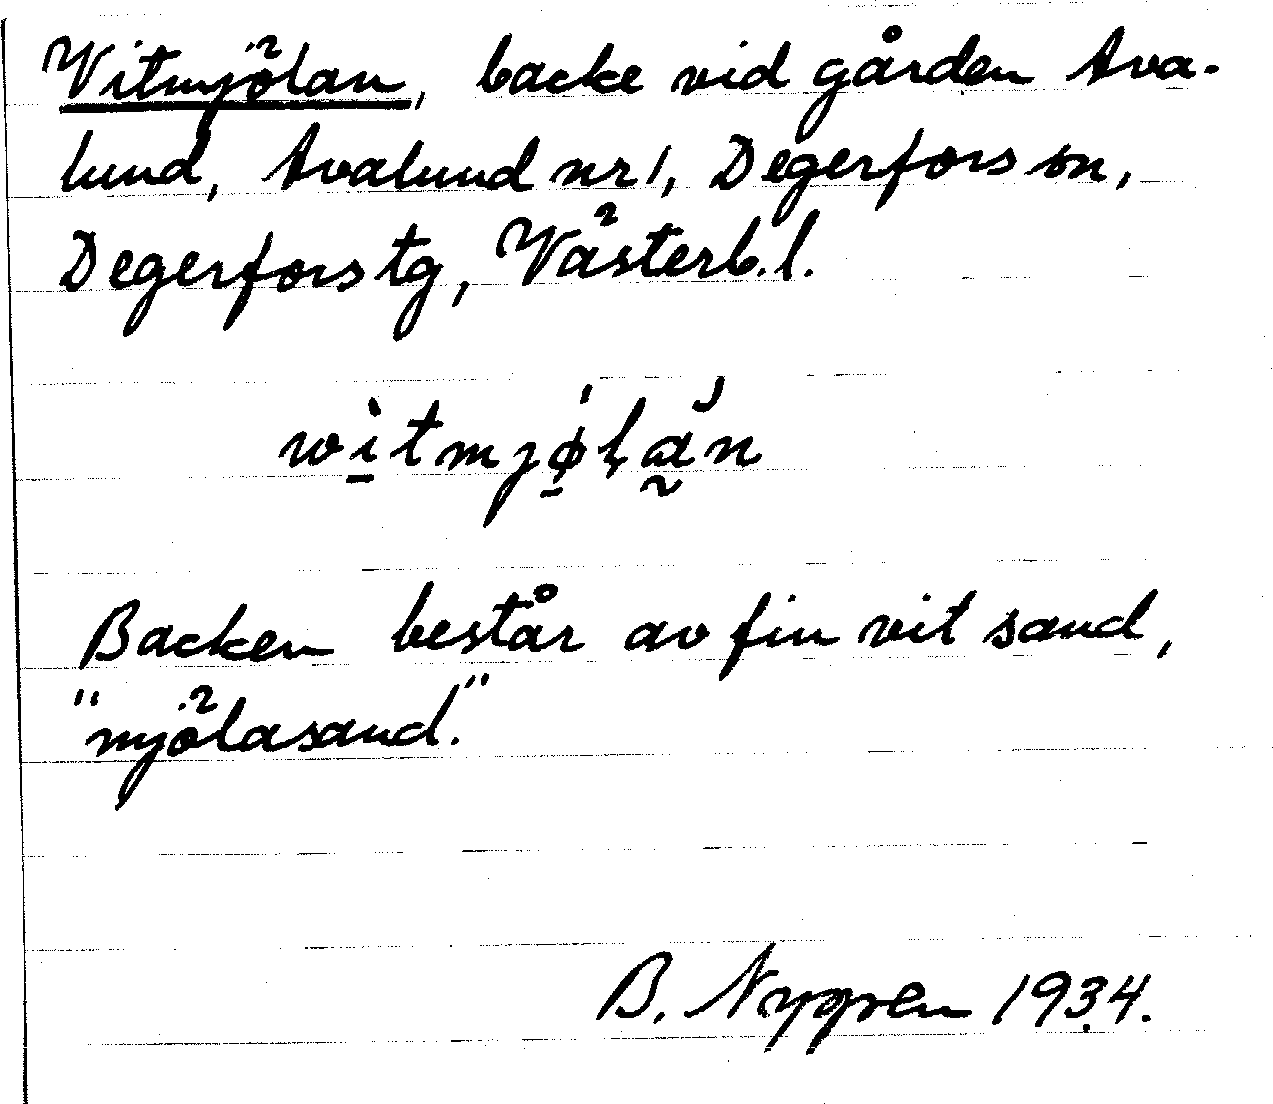 Vitmjölan, backe vid gården Ava-
lund, Avalund nr 1, Degerfors sn,
Degerfors tg, Västerb. l.
wìtmjǿla̰n
Backen består av fin vit sand,
"mjölasand."
B. Nygren 1934.